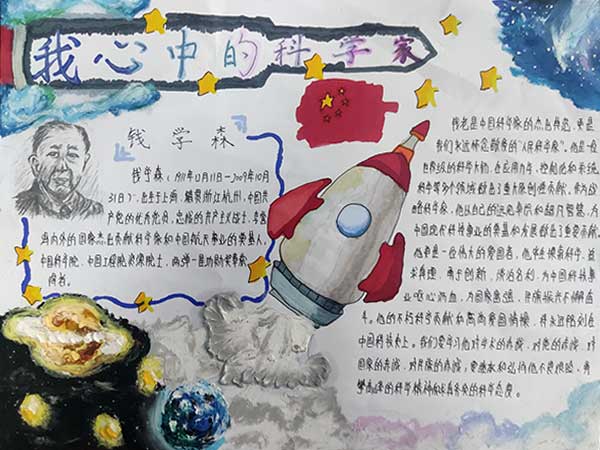 我心中的科学家
钱学森
钱学森(1911年12月11日—2009年10月
31日),出生于上海,籍贯浙江杭州,中国共
产党的优秀党员,忠诚的共产主义战士,享誉
海内外的国际杰出贡献科学家和中国航天事业的奠基人,
中国科学院、中国工程院资深院士,两弹一星功勋奖章获
得者。
钱老是中国科学家的杰出典范,更是
我们永远怀念尊敬的“人民科学家”。他是一位
世界级的科学大师,在应用力学、控制论和系统
科学等多个领域都有重大原创性贡献,作为战
略科学家,他以自己的远见卓识和超凡智慧,为
中国现代科技事业的奠基和发展做出重要贡献
他更是一位伟大的爱国者,他毕生探索科学、追
求真理、勇于创新、淡泊名利,为中国科技事
业呕心沥血,为国家富强、民族振兴不懈奋
斗。他的不朽科学贡献和高尚爱国情操,将永远铭刻在
中国科技史上。我们要学习他对学术的赤诚,对党的赤诚,对
国家的赤诚,对民族的赤诚,要继承和弘扬他不畏艰险,勇
攀高峰的科学精神和求真务实的科学态度。